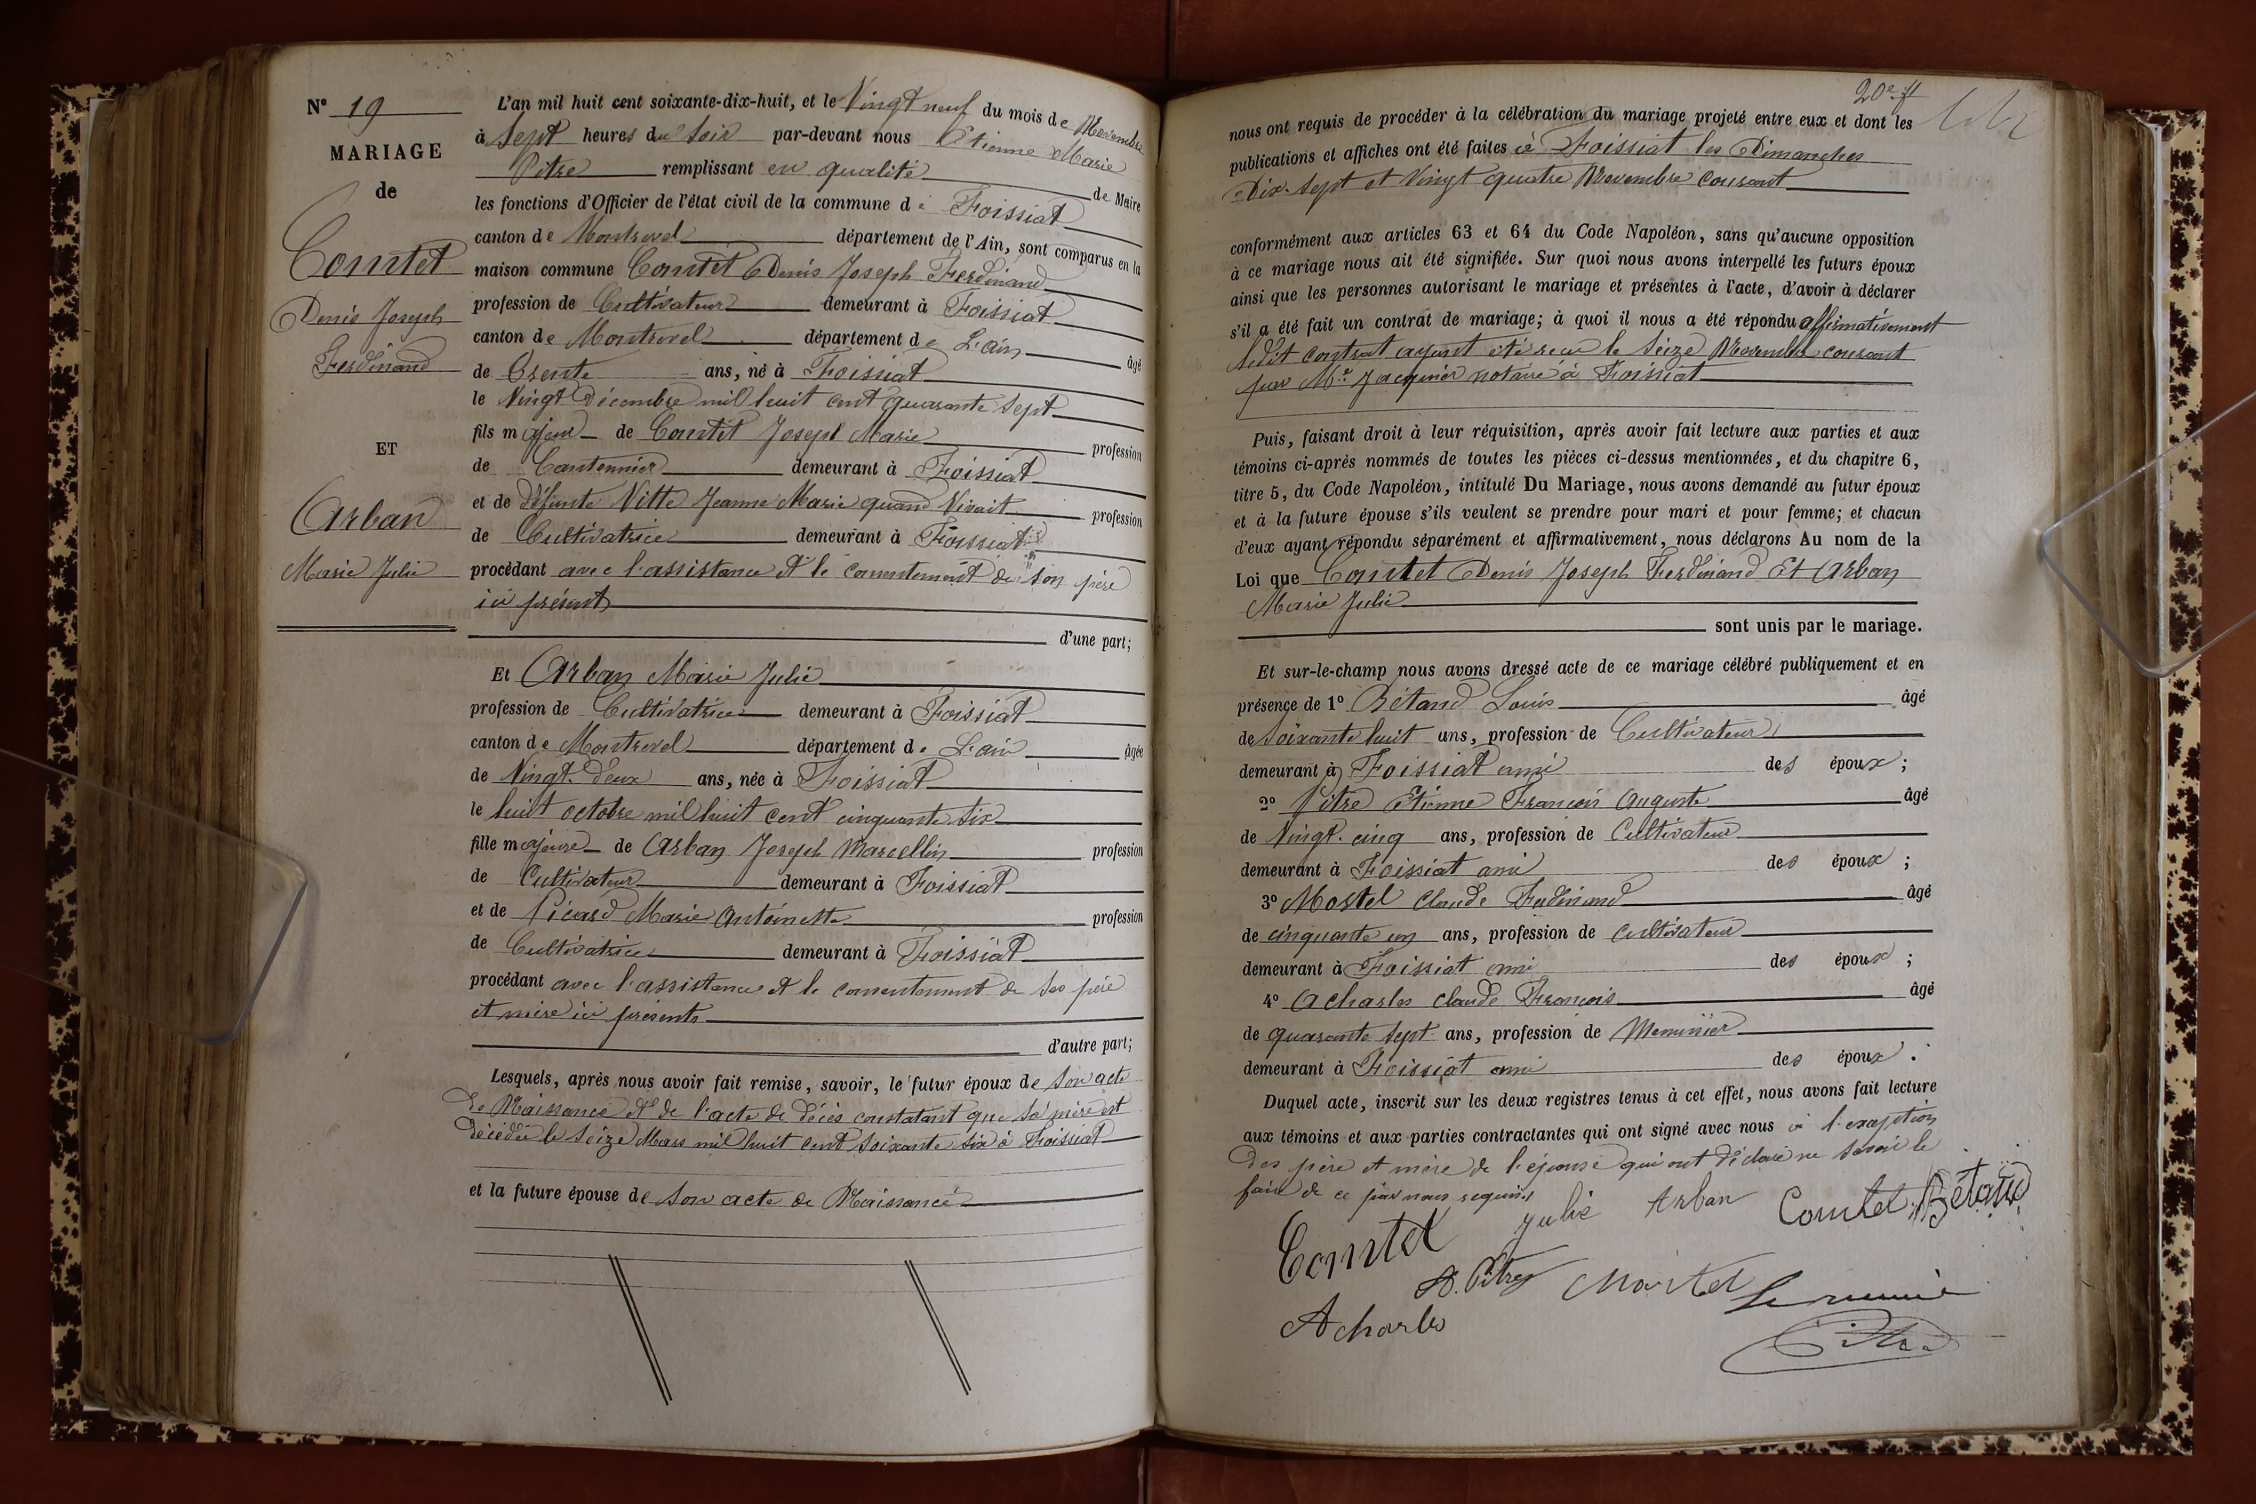 N° 19
MARIAGE
de
Comtet
Denis Joseph
Ferdinand
ET
Arban
Marie Julie
L'an mil huit cent soixante-dix-huit, et le Vingt neuf du mois de Novembre
à Sept heures du Soir par-devant nous Etienne Marie
Pitre remplissant en qualité de Maire
les fonctions d'Officier de l'état civil de la commune de Foissiat
canton de Montrevel département de l'Ain, sont comparus en la
maison commune Comtet Denis Joseph Ferdinand
profession de Cultivateur demeurant à Foissiat
canton de Montrevel département de L'ain âgé
de Trente ans, né à Foissiat
le Vingt Décembre mil huit cent quarante Sept
fils majeur de Comtet Joseph Marie profession
de Cantonnier demeurant à Foissiat
et de défunte Vitte Jeanne Marie quand Vivait profession
de Cultivatrice demeurant à Foissiat
procédant avec l'assistance et le consentement de son père
ici présent
d'une part;
Et Arban Marie Julie
profession de Cultivatrice demeurant à Foissiat
canton de Montrevel département de L'ain âgée
de Vingt-deux ans, née à Foissiat
le huit octobre mil huit cent cinquante six
fille majeure de Arban Joseph Marcellin profession
de Cultivateur demeurant à Foissiat
et de Picard Marie Antoinette profession
de Cultivatrice demeurant à Foissiat
procédant avec l'assistance et le consentement de ses père
et mère ici présents
d'autre part;
Lesquels, après nous avoir fait remise, savoir, le futur époux de son acte
de Naissance et de l'acte de décès constatant que sa mère est
décédée le Seize Mars mil huit cent soixante six à Foissiat
et la future épouse de son acte de Naissance
20e ff
nous ont requis de procéder à la célébration du mariage projeté entre eux et dont les
publications et affiches ont été faites à Foissiat les Dimanches
Dix-Sept et Vingt quatre Novembre courant
conformément aux articles 63 et 64 du Code Napoléon, sans qu'aucune opposition
à ce mariage nous ait été signifiée. Sur quoi nous avons interpellé les futurs époux
ainsi que les personnes autorisant le mariage et présentes à l'acte, d'avoir à déclarer
s'il a été fait un contrat de mariage; à quoi il nous a été répondu affirmativement
ledit contrat ayant été reçu le Seize Novembre courant
par Me Jacquier notaire à Foissiat
Puis, faisant droit à leur réquisition, après avoir fait lecture aux parties et aux
témoins ci-après nommés de toutes les pièces ci-dessus mentionnées, et du chapitre 6,
titre 5, du Code Napoléon, intitulé Du Mariage, nous avons demandé au futur époux
et à la future épouse s'ils veulent se prendre pour mari et pour femme; et chacun
d'eux ayant répondu séparément et affirmativement, nous déclarons Au nom de la
Loi que Comtet Denis Joseph Ferdinand Et Arban
Marie Julie
sont unis par le mariage.
Et sur-le-champ nous avons dressé acte de ce mariage célébré publiquement et en
présence de 1° Bétand Louis âgé
de Soixante huit ans, profession de Cultivateur
demeurant à Foissiat ami des époux;
2° Pitre Etienne François Auguste âgé
de Vingt-cinq ans, profession de Cultivateur
demeurant à Foissiat ami des époux;
3° Mortel Claude Ferdinand âgé
de cinquante un ans, profession de cultivateur
demeurant à Foissiat ami des époux;
4° Acharles Claude François âgé
de quarante sept ans, profession de Meunier
demeurant à Foissiat ami des époux.
Duquel acte, inscrit sur les deux registres tenus à cet effet, nous avons fait lecture
aux témoins et aux parties contractantes qui ont signé avec nous à l'exception
des père et mère de l'épouse qui ont déclaré ne savoir le
faire de ce par nous requis
Comtet Julie Arban Comtet Bétand
A. Pitre Mortel Le maire
Acharles Pitre